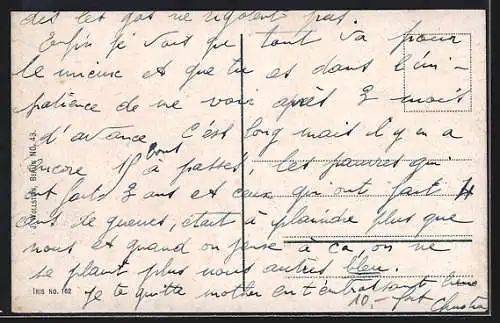 dès les gas ne rigolent pas.
Enfin je vois que tout va pour
le mieux et que tu es dans l'im-
patience de me voir après 3 mois
d'avance. C'est long mais il y en a
encore 18 à passer, les pauvres qui
ont faits 3 ans et ceux qui ont fait 4
ans de guerres, était à plaindre plus que
nous et quand on pense à ça, on ne
se plaint plus nous autres bleu.
Je te quitte en t'embrassant bien
fort
10.-
J. WOLLSTEIN, BERLIN NO. 43.
IRIS NO. 162